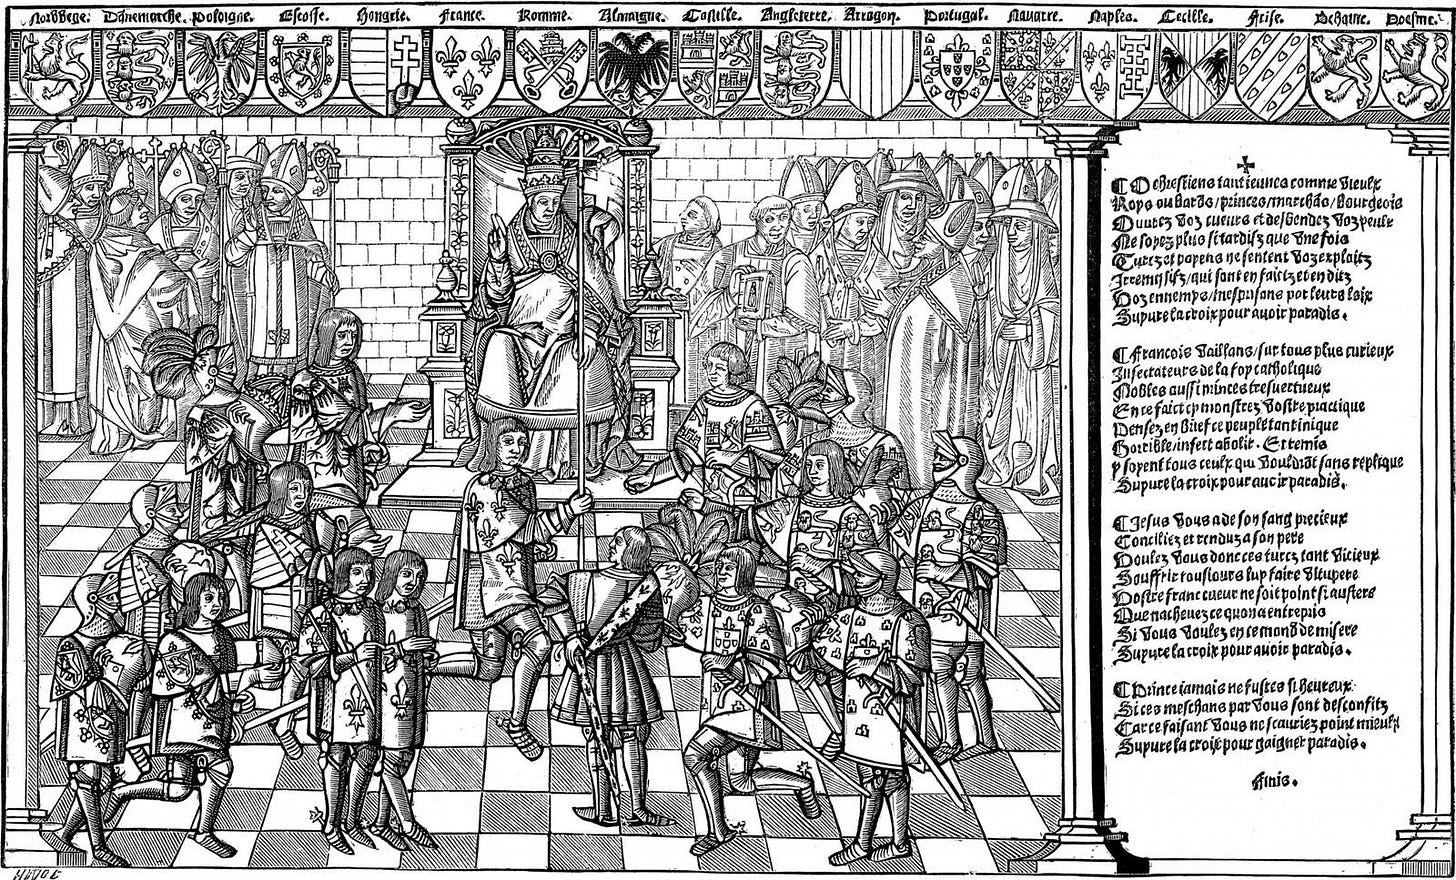 Norvege. Dannemarche. Poloigne. Escosse. Hongrie. France. Romme. Almaigne. Castille. Angleterre. Arragon. Portugal. Navarre. Naples. Cecille. Frise. Behaigne. Boesme.
O chrestiens tant ieunes comme vieulx
Roys ou bards/princes/marchãs/bourgeois
Ouurez voz cueurs et desbendez voz yeulx
Ne soyez plus si tardifz que une fois
Turcz et payens ne sentent voz exploitz
Irremissifz/qui sont en faictz et en ditz
Voz ennemys/mesprisans por leurs loix
Supure la croix pour avoir paradis.
Francois vaillans/sur tous plus curieux
Insectateurs de la foy catholique
Nobles aussi princes tresvertueux
En ce faict cy monstrez vostre practique
Pensez en brief ce peuple tant inique
Horrible/infect abolir. Et remis
y soyent tous ceulx qui vouldrõt sans replique
Supure la croix pour avoir paradis.
Jesus vous a de son sang precieux
Conciliez et rendus a son pere
Voulez vous donc ces turcz tant vicieux
Souffrir tousiours luy faire vitupere
Vostre franc cueur ne soit point si austere
Que nachevez ce quon a entrepris
Si vous voulez en ce mond de misere
Supure la croix pour avoir paradis.
Prince iamais ne fustes si heureux
Si ces meschans par vous sont desconfitz
Car ce faisant vous ne scauriez point mieulx
Supure la croix pour gaigner paradis.
Finis.